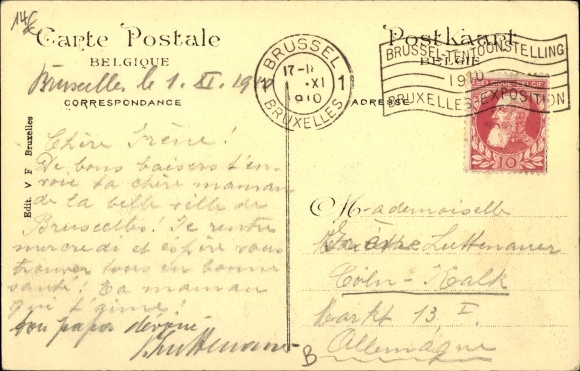 14€
Carte Postale
BELGIQUE
Bruxelles le 1. XI. 1910
CORRESPONDANCE
Postkaart
BELGIË
ADRESSE
BRUSSEL
1 17-18 1
XI
1910
BRUXELLES
BRUSSEL-TENTOONSTELLING
1910
BRUXELLES-EXPOSITION
10
Edit. V F Bruxelles
Chère Irène!
De bons baisers t'en-
voie ta chère maman
de la belle ville de
Bruxelles! Je rentre
mercredi et espère vous
trouver tous en bonne
santé! Ta maman
qui t'aime!
ton papa dévoué
Luttenauer
Mademoiselle
Irène Luttenauer
Cöln-Kalk
Markt 13 I.
Allemagne
B